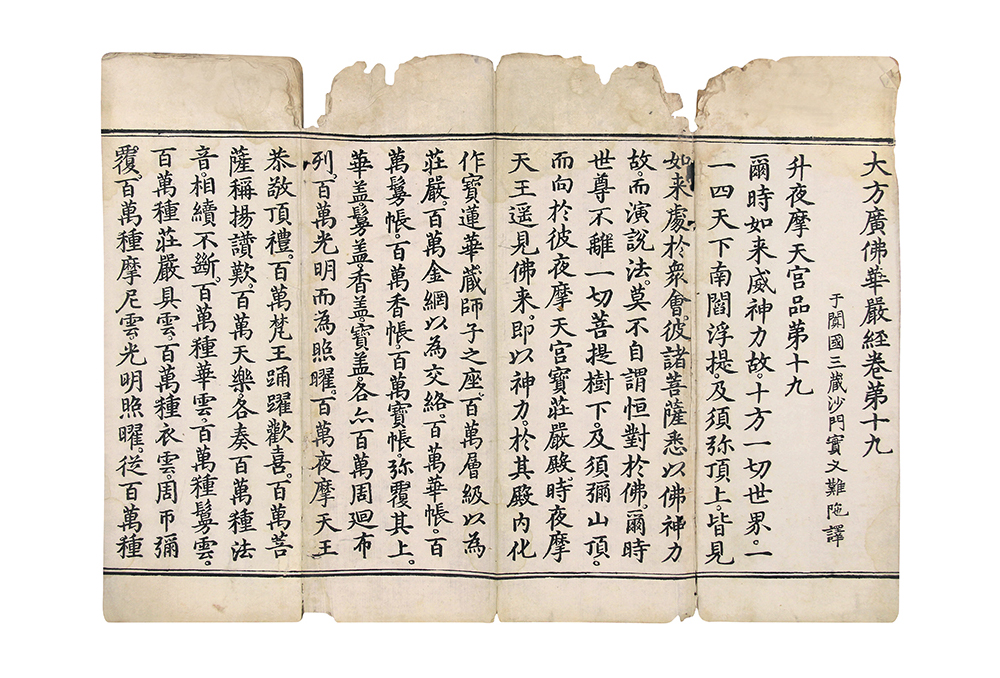 大方廣佛華嚴経卷苐十九
于闐國三蔵沙門實叉難陁譯
升夜摩天宫品苐十九
爾時如来威神力故。十方一切世界。一
一四天下南閻浮提。及湏弥頂上。皆見
如来處於衆會。彼諸菩薩悉以佛神力
故。而演說法。莫不自謂恒對於佛。爾時
世尊不離一切菩提樹下。及湏彌山頂。
而向於彼夜摩天宫寶莊嚴殿。時夜摩
天王遥見佛来。即以神力。於其殿内化
作寶蓮華蔵師子之座。百萬層級以為
莊嚴。百萬金網以為交絡。百萬華帳。百
萬鬘帳。百萬香帳。百萬寶帳。弥覆其上。
華盖鬘盖。香盖。寶盖。各亦百萬周迴布
列。百萬光明而為照曜。百萬夜摩天王
恭敬頂禮。百萬梵王踊躍歡喜。百萬菩
薩稱揚讃歎。百萬天樂。各奏百萬種法
音。相續不斷。百萬種華雲。百萬種鬘雲。
百萬種莊嚴具雲。百萬種衣雲。周帀彌
覆。百萬種摩尼雲。光明照曜。従百萬種